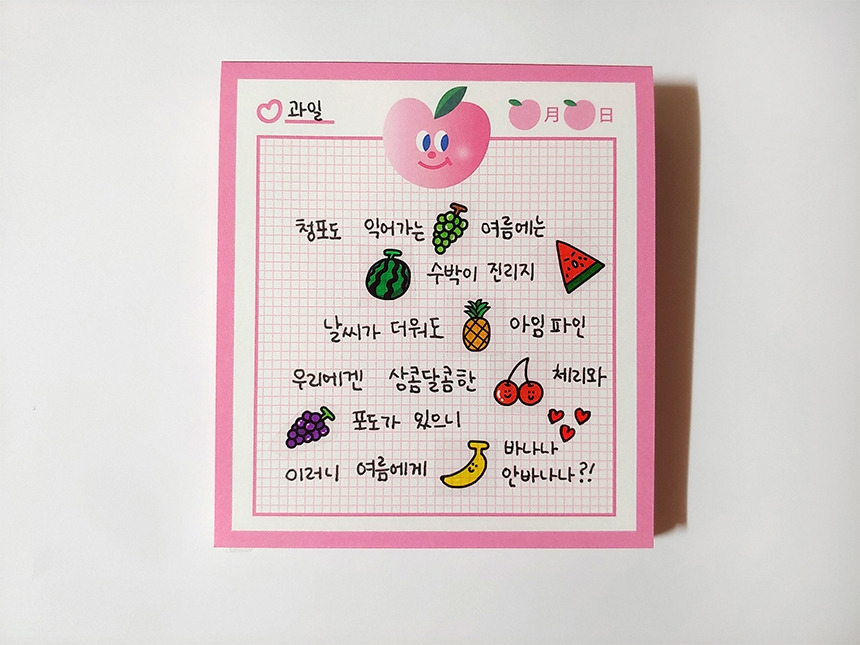 과일
月 日
청포도 익어가는 여름에는
수박이 진리지
날씨가 더워도 아임파인
우리에겐 상콤달콤한 체리와
포도가 있으니
이러니 여름에게 바나나
안바나나?!